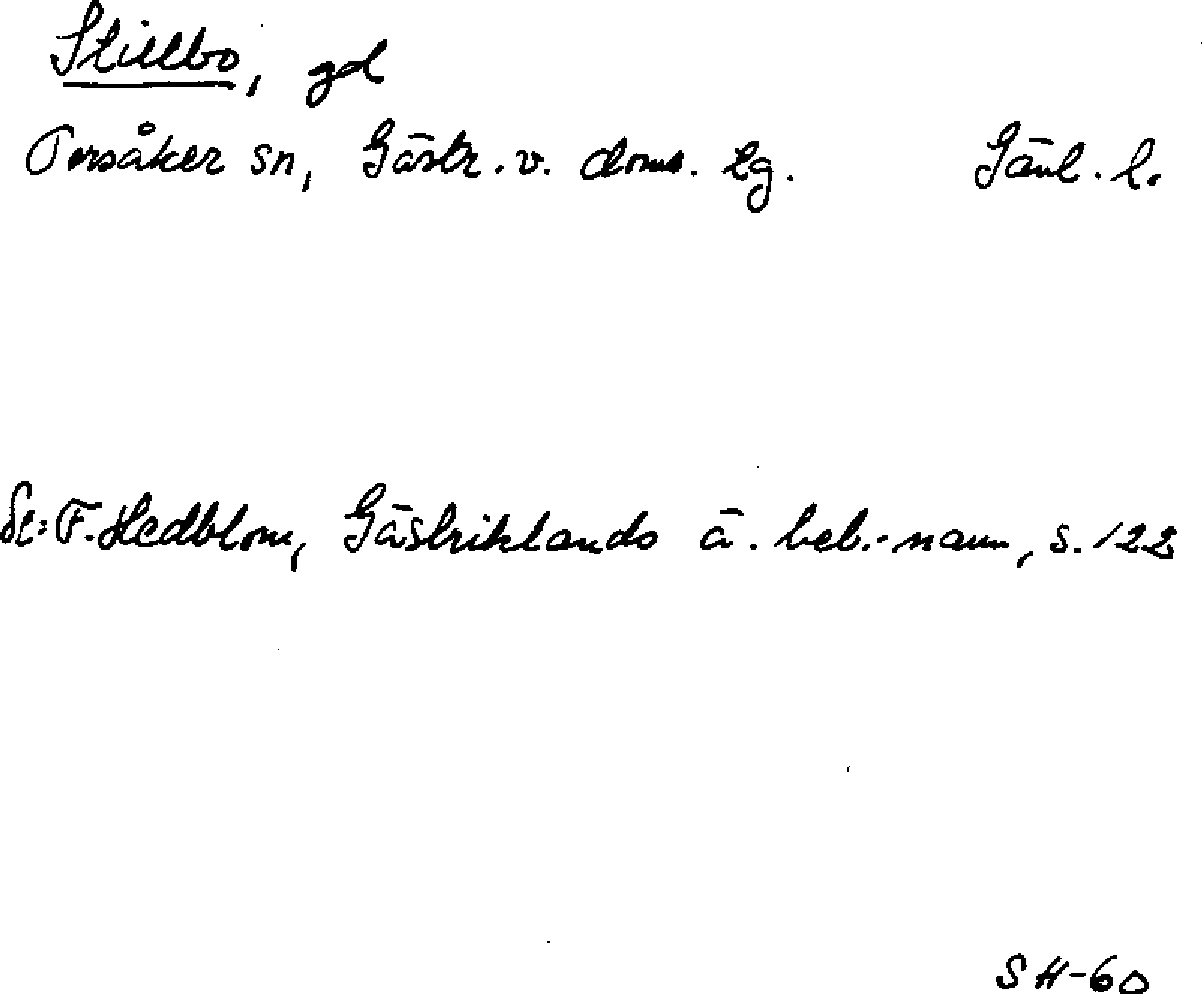 Stillbo, gd
Torsåker sn, Gästr. v. doms. tg. Gävl. l.
St: F. Hedblom, Gästriklands ä. beb.-namn, s. 122
SH-60